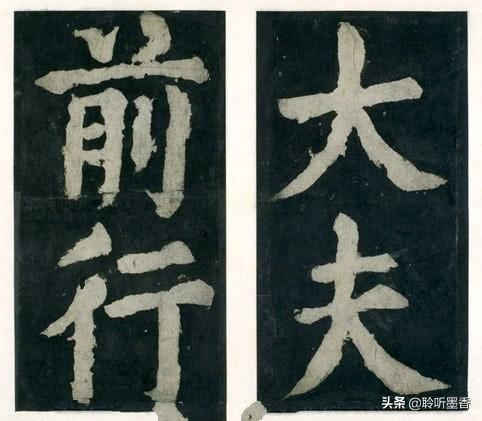 大夫
前行
头条 @聆听墨香